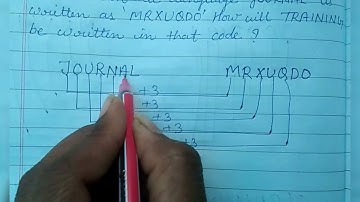 language JOURNAL is
written as MRXUQDO' How will TRAINING
be written in that code ?
JOURNAL MRXUQDO
+3
+3
+3
+3